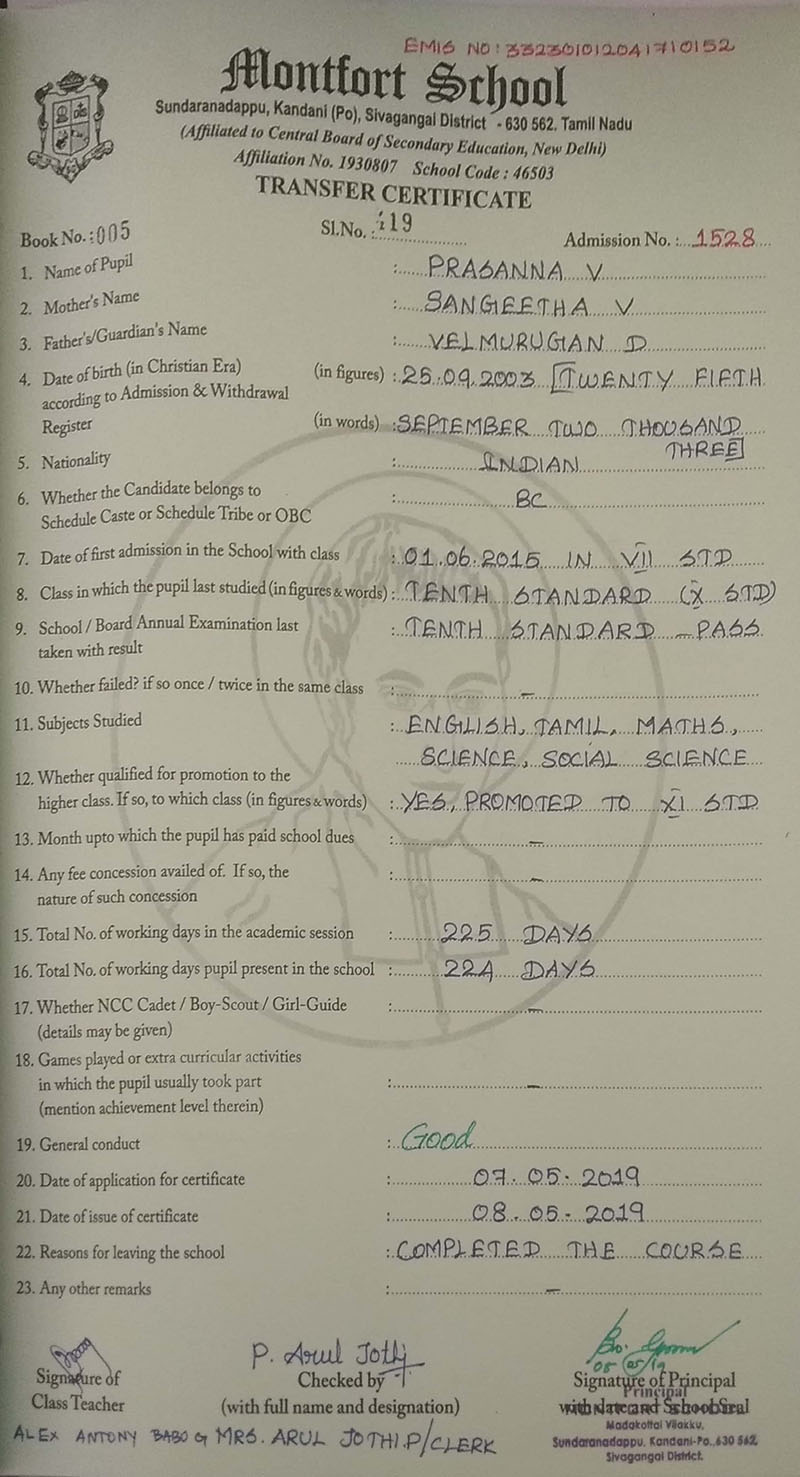 EMIS NO: 33230101204171 0152
Montfort School
Sundaranadappu, Kandani (Po), Sivagangai District - 630 562. Tamil Nadu
(Affiliated to Central Board of Secondary Education, New Delhi)
Affiliation No. 1930807 School Code : 46503
TRANSFER CERTIFICATE
Book No. : 005 Sl.No. : 119 Admission No. : 1528
1. Name of Pupil : PRASANNA V
2. Mother's Name : SANGEETHA V
3. Father's/Guardian's Name : VELMURUGAN D
4. Date of birth (in Christian Era) (in figures) : 25.09.2003 [TWENTY FIFTH
according to Admission & Withdrawal
Register (in words) : SEPTEMBER TWO THOUSAND
THREE]
5. Nationality : INDIAN
6. Whether the Candidate belongs to : BC
Schedule Caste or Schedule Tribe or OBC
7. Date of first admission in the School with class : 01.06.2015 IN VII STD
8. Class in which the pupil last studied (in figures & words) : TENTH STANDARD (X STD)
9. School / Board Annual Examination last : TENTH STANDARD - PASS
taken with result
10. Whether failed? if so once / twice in the same class : -
11. Subjects Studied : ENGLISH, TAMIL, MATHS,
SCIENCE, SOCIAL SCIENCE
12. Whether qualified for promotion to the
higher class. If so, to which class (in figures & words) : YES, PROMOTED TO XI STD
13. Month upto which the pupil has paid school dues : -
14. Any fee concession availed of. If so, the : -
nature of such concession
15. Total No. of working days in the academic session : 225 DAYS
16. Total No. of working days pupil present in the school : 224 DAYS
17. Whether NCC Cadet / Boy-Scout / Girl-Guide : -
(details may be given)
18. Games played or extra curricular activities
in which the pupil usually took part : -
(mention achievement level therein)
19. General conduct : Good
20. Date of application for certificate : 07.05.2019
21. Date of issue of certificate : 08.05.2019
22. Reasons for leaving the school : COMPLETED THE COURSE
23. Any other remarks : -
P. Arul Jothi
08/05/19
Signature of Checked by Signature of Principal
Principal
Class Teacher (with full name and designation) with date and School Seal
ALEX ANTONY BABO G MRS. ARUL JOTHI.P/CLERK
Madakottai Vilakku,
Sundaranadappu, Kandani-Po.,630 562.
Sivagangai District.